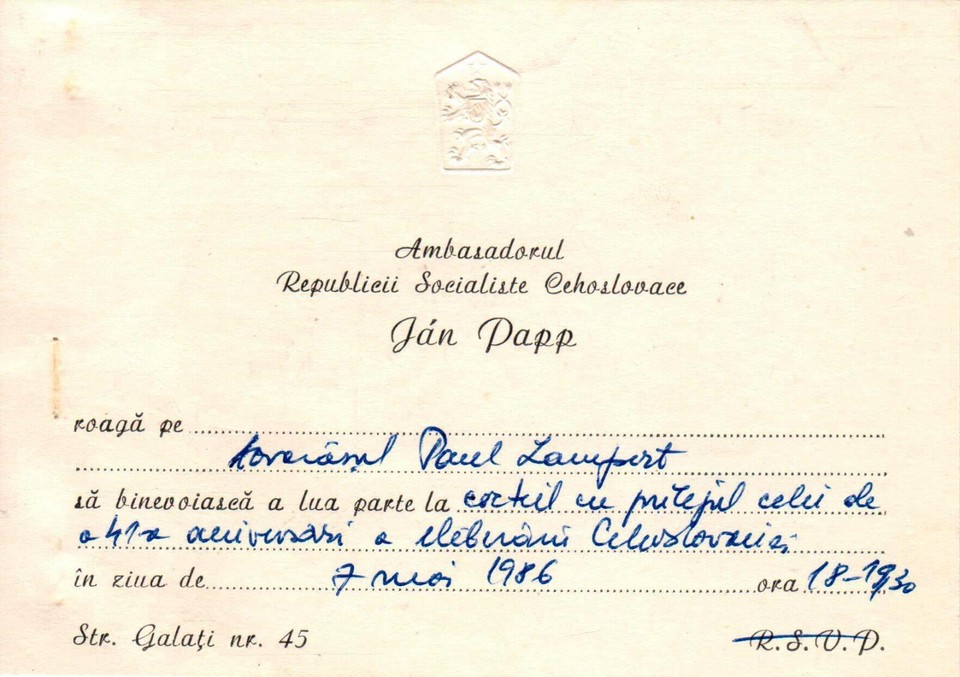 Ambasadorul
Republicii Socialiste Cehoslovace
Ján Papp
roagă pe
tovarășul Paul Lampert
să binevoiască a lua parte la cocteil cu prilejul celei de
a 41-a aniversări a eliberării Cehoslovaciei
în ziua de 7 mai 1986 ora 18-19,30
Str. Galați nr. 45 R.S.V.P.